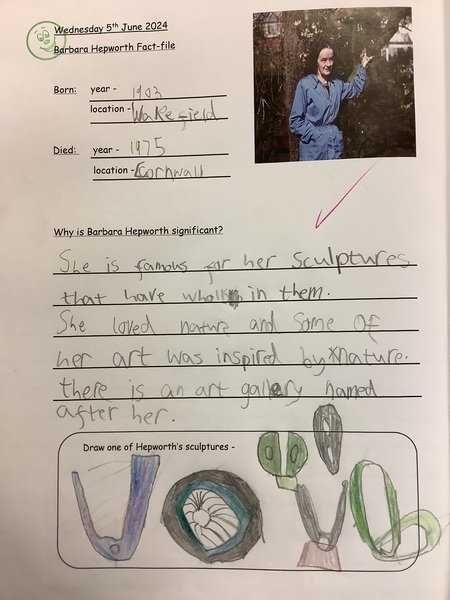 Wednesday 5th June 2024
Barbara Hepworth Fact-file
Born: year - 1903
location - Wakefield
Died: year - 1975
location - Cornwall
Why is Barbara Hepworth significant?
She is famous for her sculptures
that have in them.
She loved nature and some of
her art was inspired by nature.
there is an art gallery named
after her.
Draw one of Hepworth's sculptures -